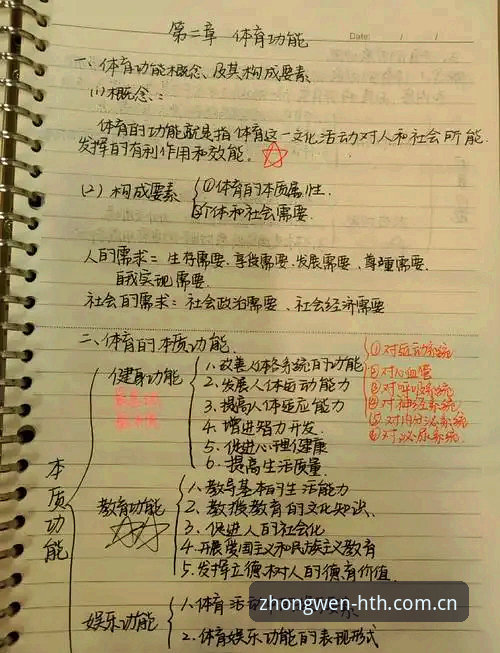 第二章 体育功能
Date: / /
一、体育功能概念、及其构成要素
(1)概念:
体育的功能就是指体育这一文化活动对人和社会所能
发挥的有利作用和效能。
(2) 构成要素
①体育的本质属性.
②个体和社会需要.
人的需求= 生存需要、享受需要、发展需要、尊重需要、
自我实现需要.
社会的需求= 社会政治需要、社会经济需要
二、体育的本质功能.
本质功能
健身功能
1.改善人体各系统的功能
①对运动系统
②对心血管
③对呼吸系统
④对神经系统
⑤对内分泌系统
⑥对泌尿系统
2.发展人体运动能力
3.提高人体适应能力
4.增进智力开发.
5.促进心理健康
6.提高生活质量.
教育功能
1.教导基本的生活能力
2.教授教育的文化知识、
3.促进人的社会化
4.开展爱国主义和民族主义教育
5.发挥立德树人的德育价值.
娱乐功能
1.体育活动
2.体育娱乐功能的表现形式
zhongwen-hth.com.cn